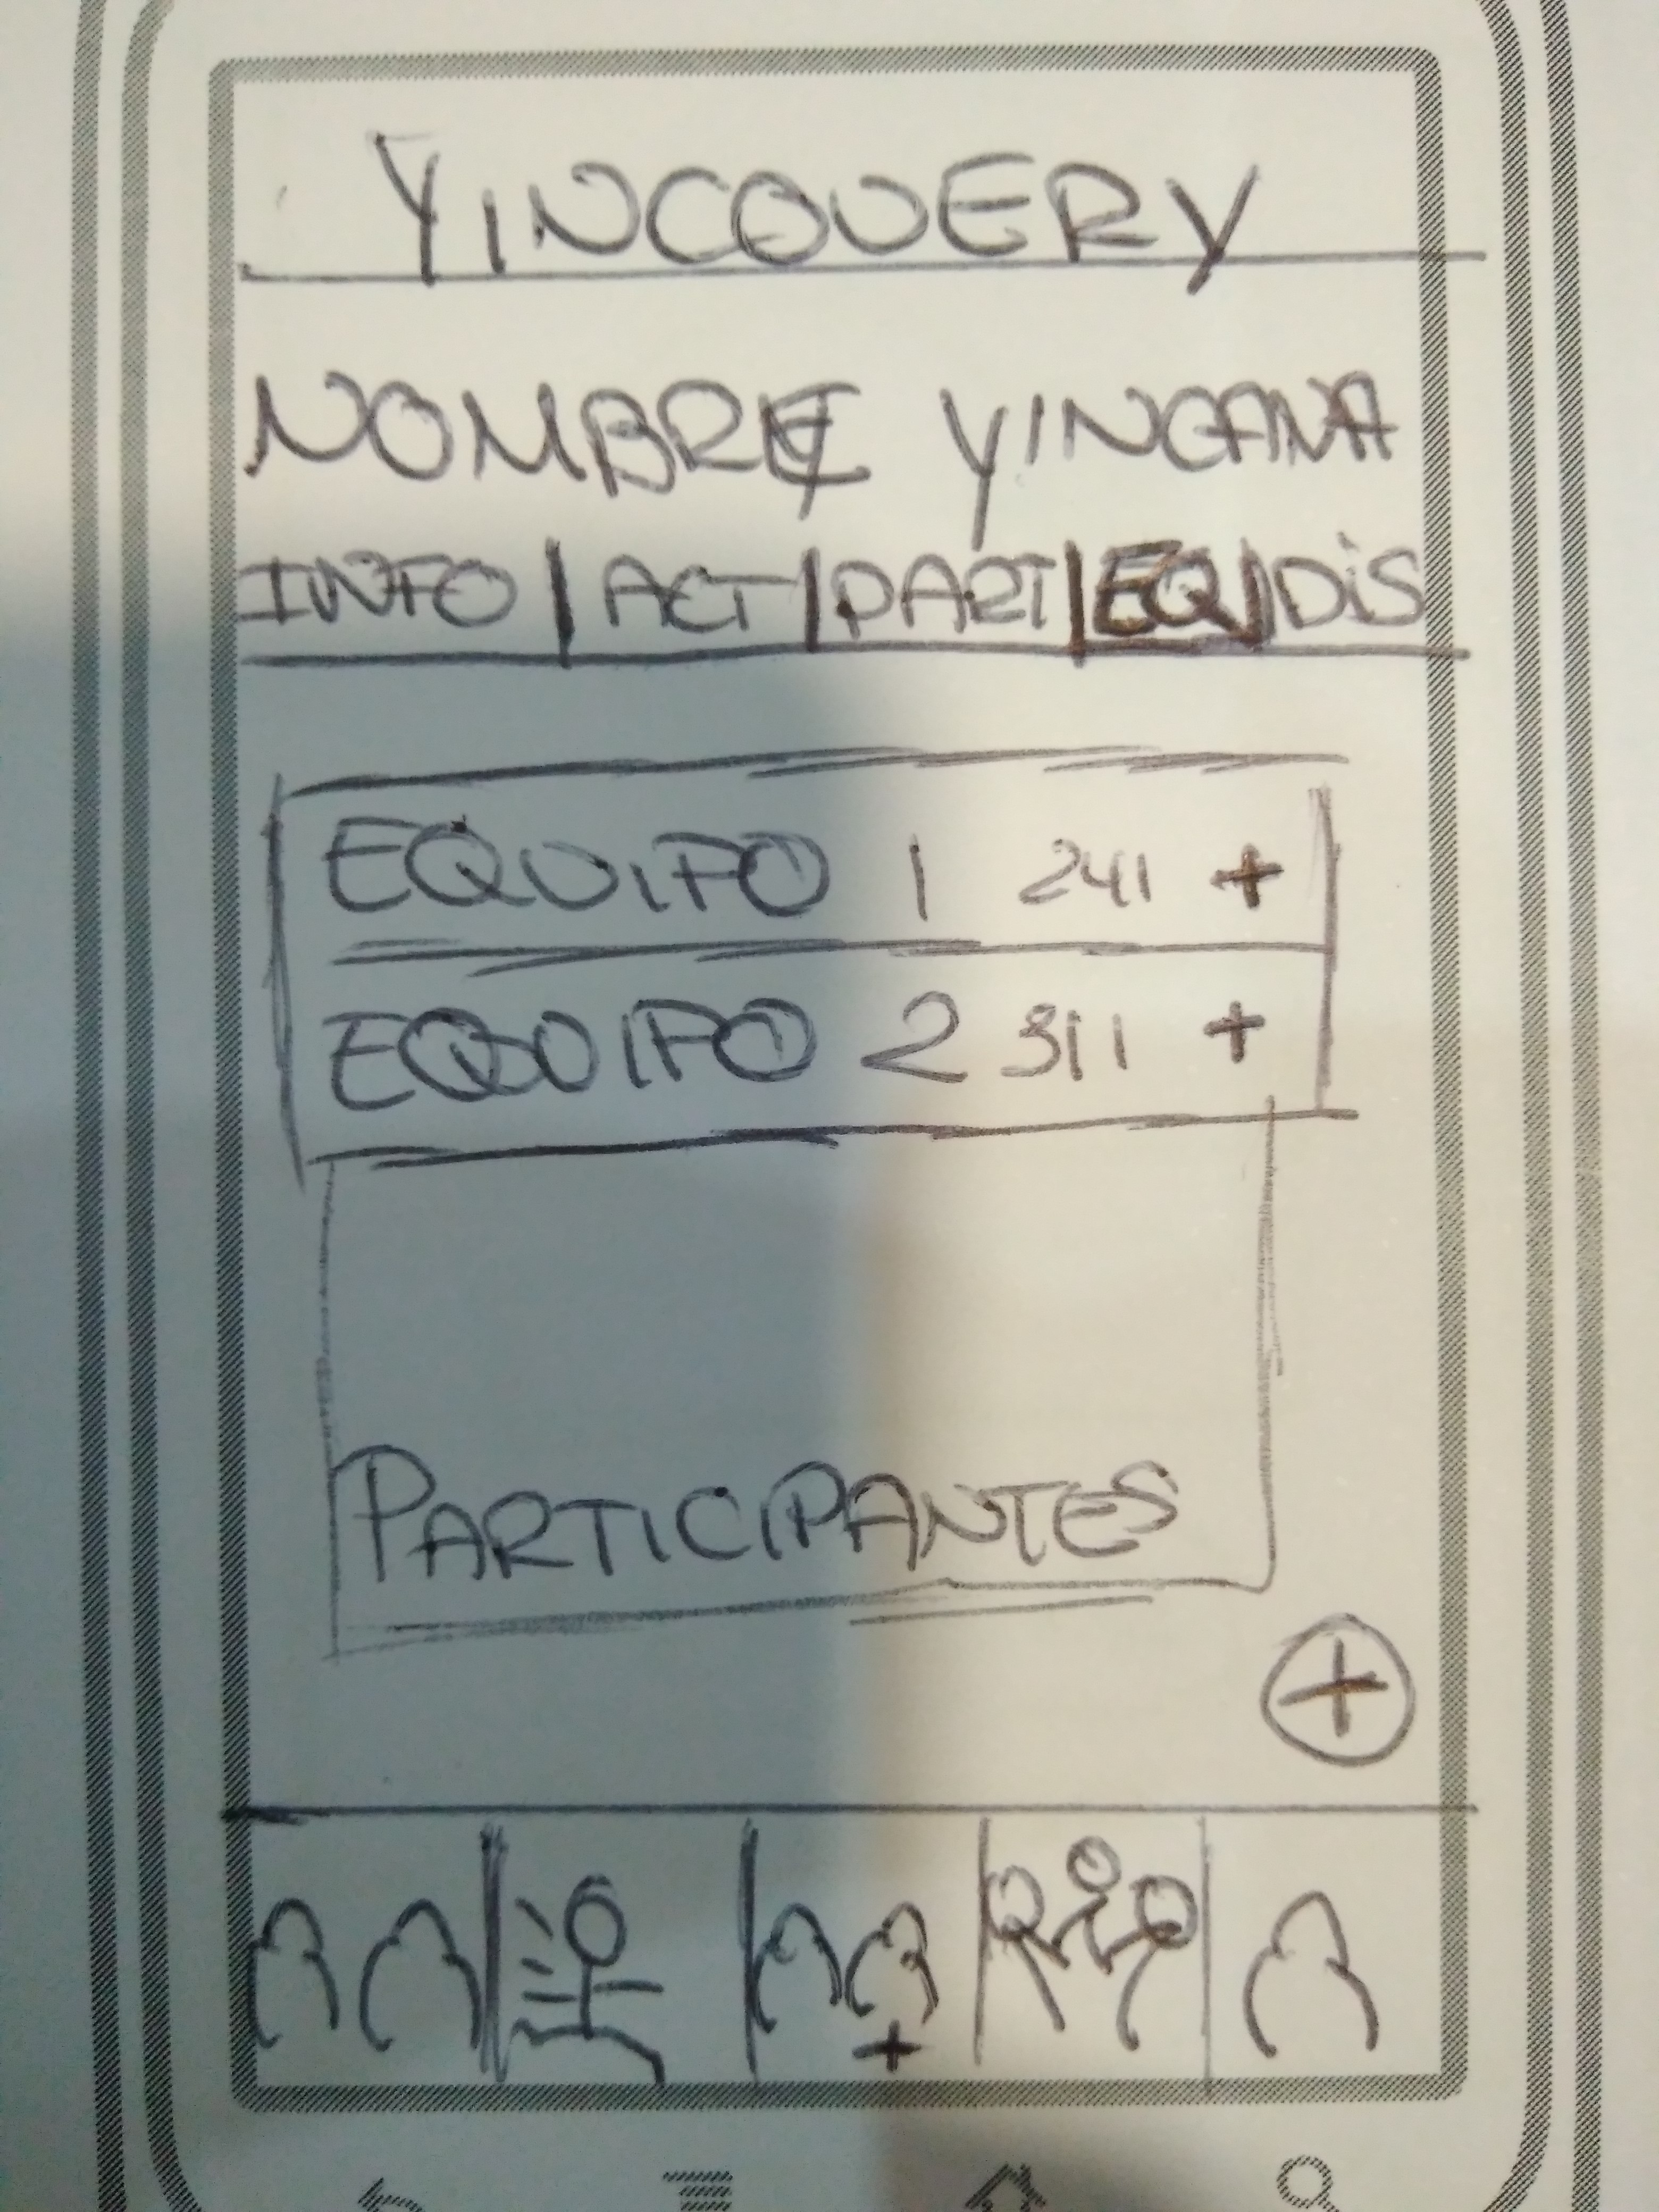 YINCOVERY
NOMBRE YINCANA
INFO | ACT | PART | EQ | DIS
EQUIPO 1 241 +
EQUIPO 2 311 +
PARTICIPANTES
+
+